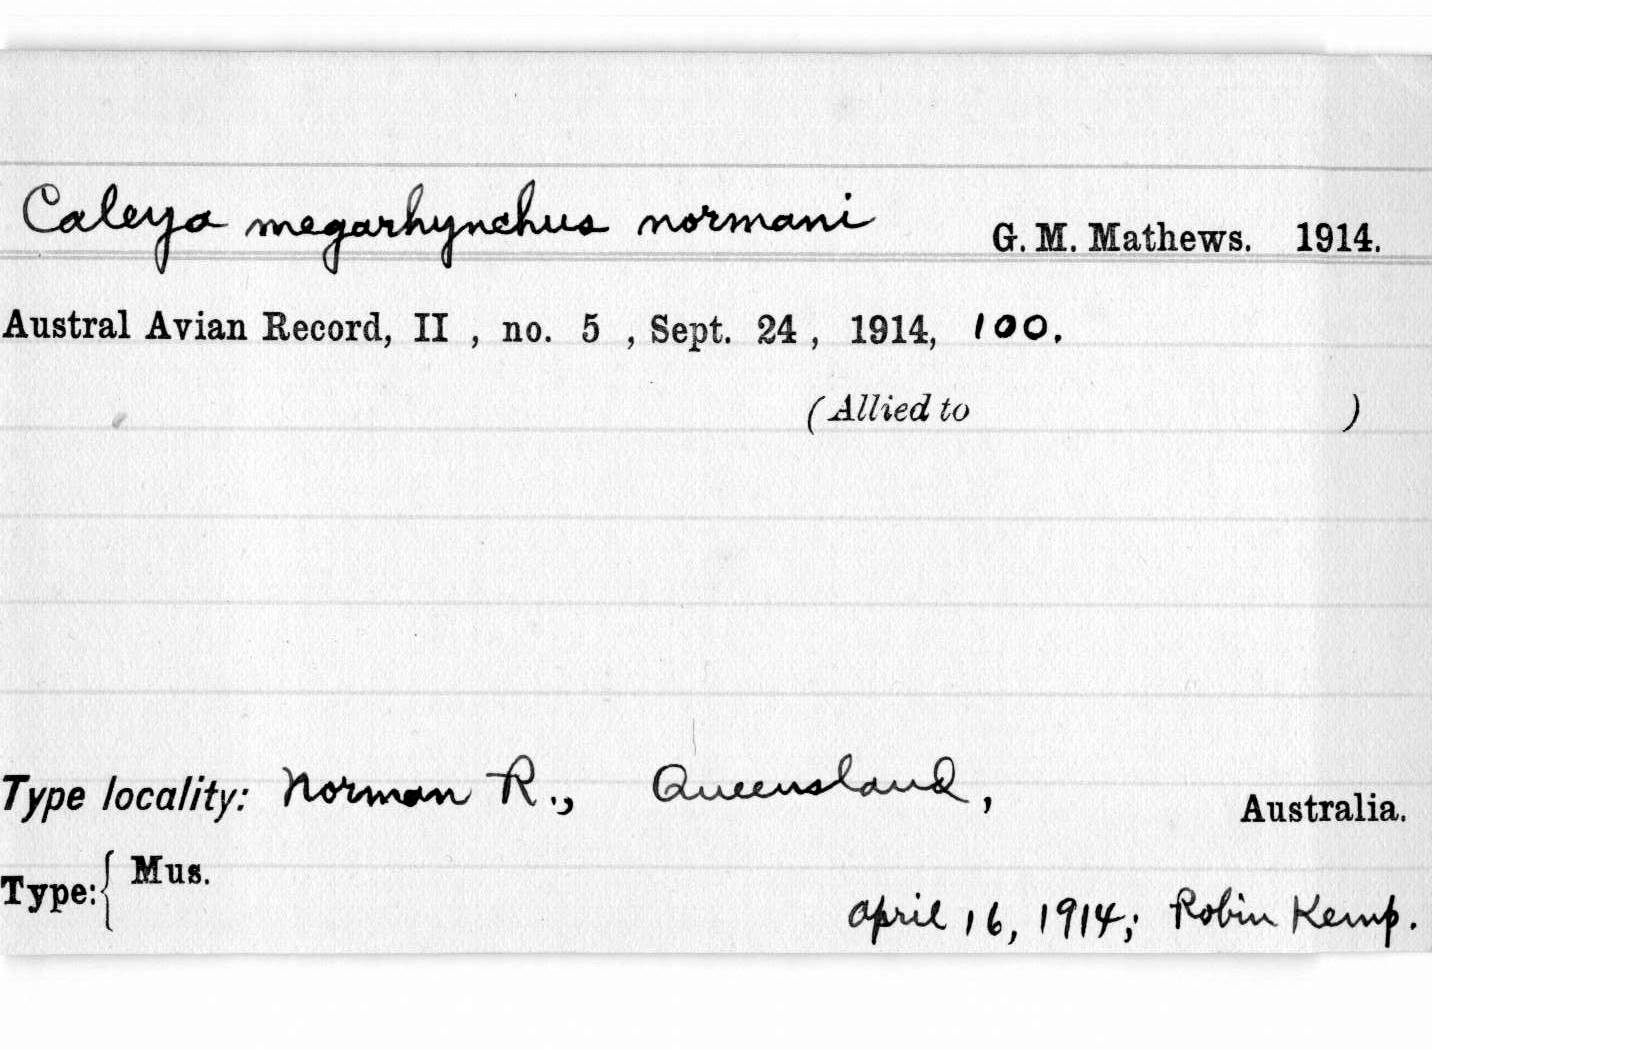 Caleya megarhynchus normani G. M. Mathews. 1914.
Austral Avian Record, II , no. 5 , Sept. 24 , 1914, 100.
(Allied to )
Type locality: Norman R., Queensland, Australia.
Type: { Mus.
April 16, 1914; Robin Kemp.